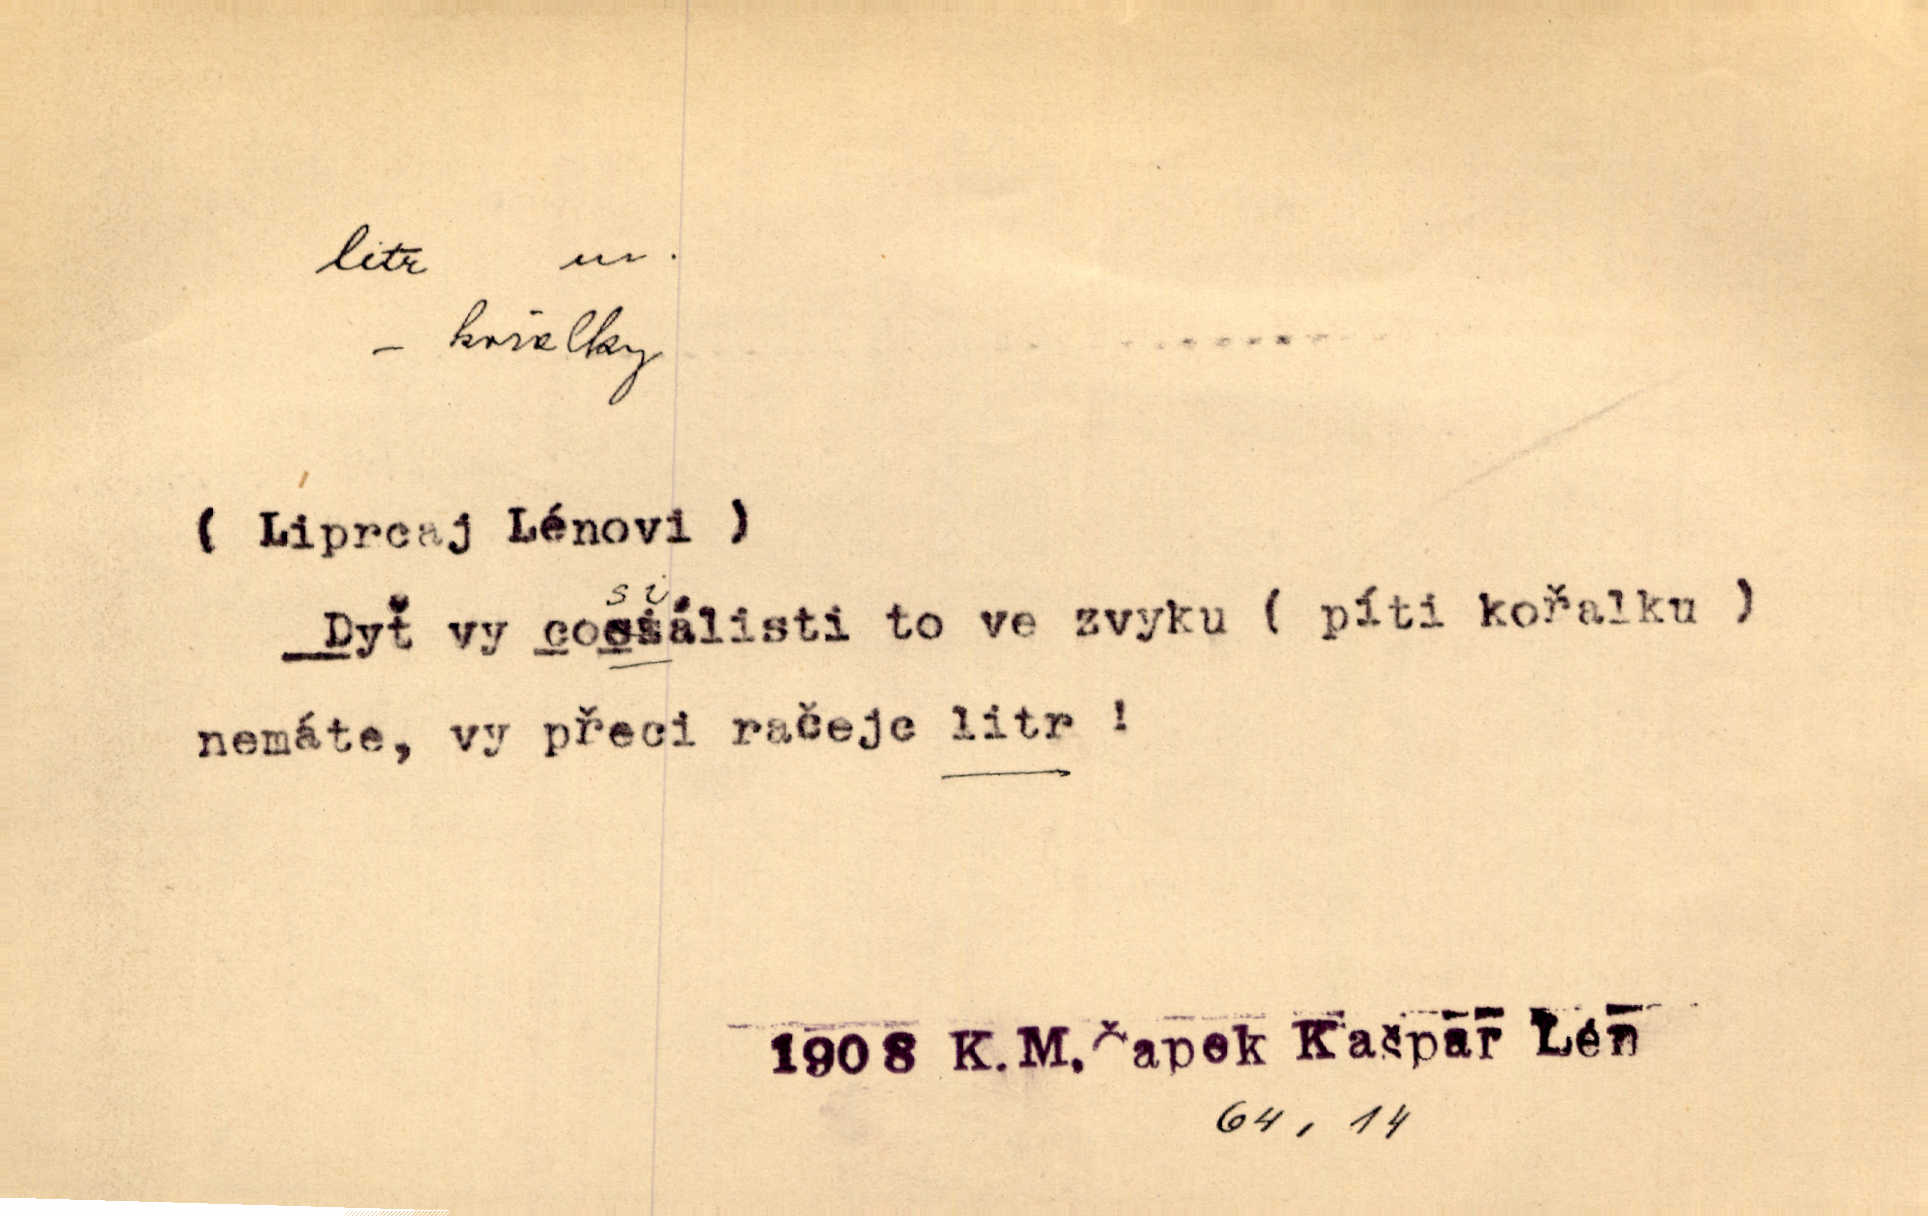 litr m.
– kořalky
( Liprcaj Lénovi )
Dyť vy cosiálisti to ve zvyku ( píti kořalku )
nemáte, vy přeci račejc litr !
1908 K.M.Čapek Kašpar Lén
64, 14